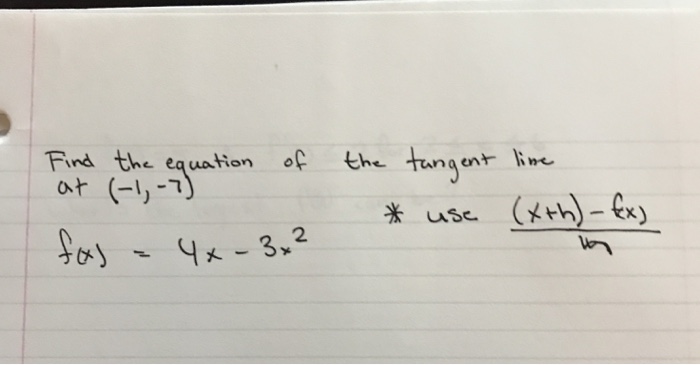 Find the equation of the tangent line
at (-1, -7)
* use (x+h) - f(x) / h
f(x) = 4x - 3x²